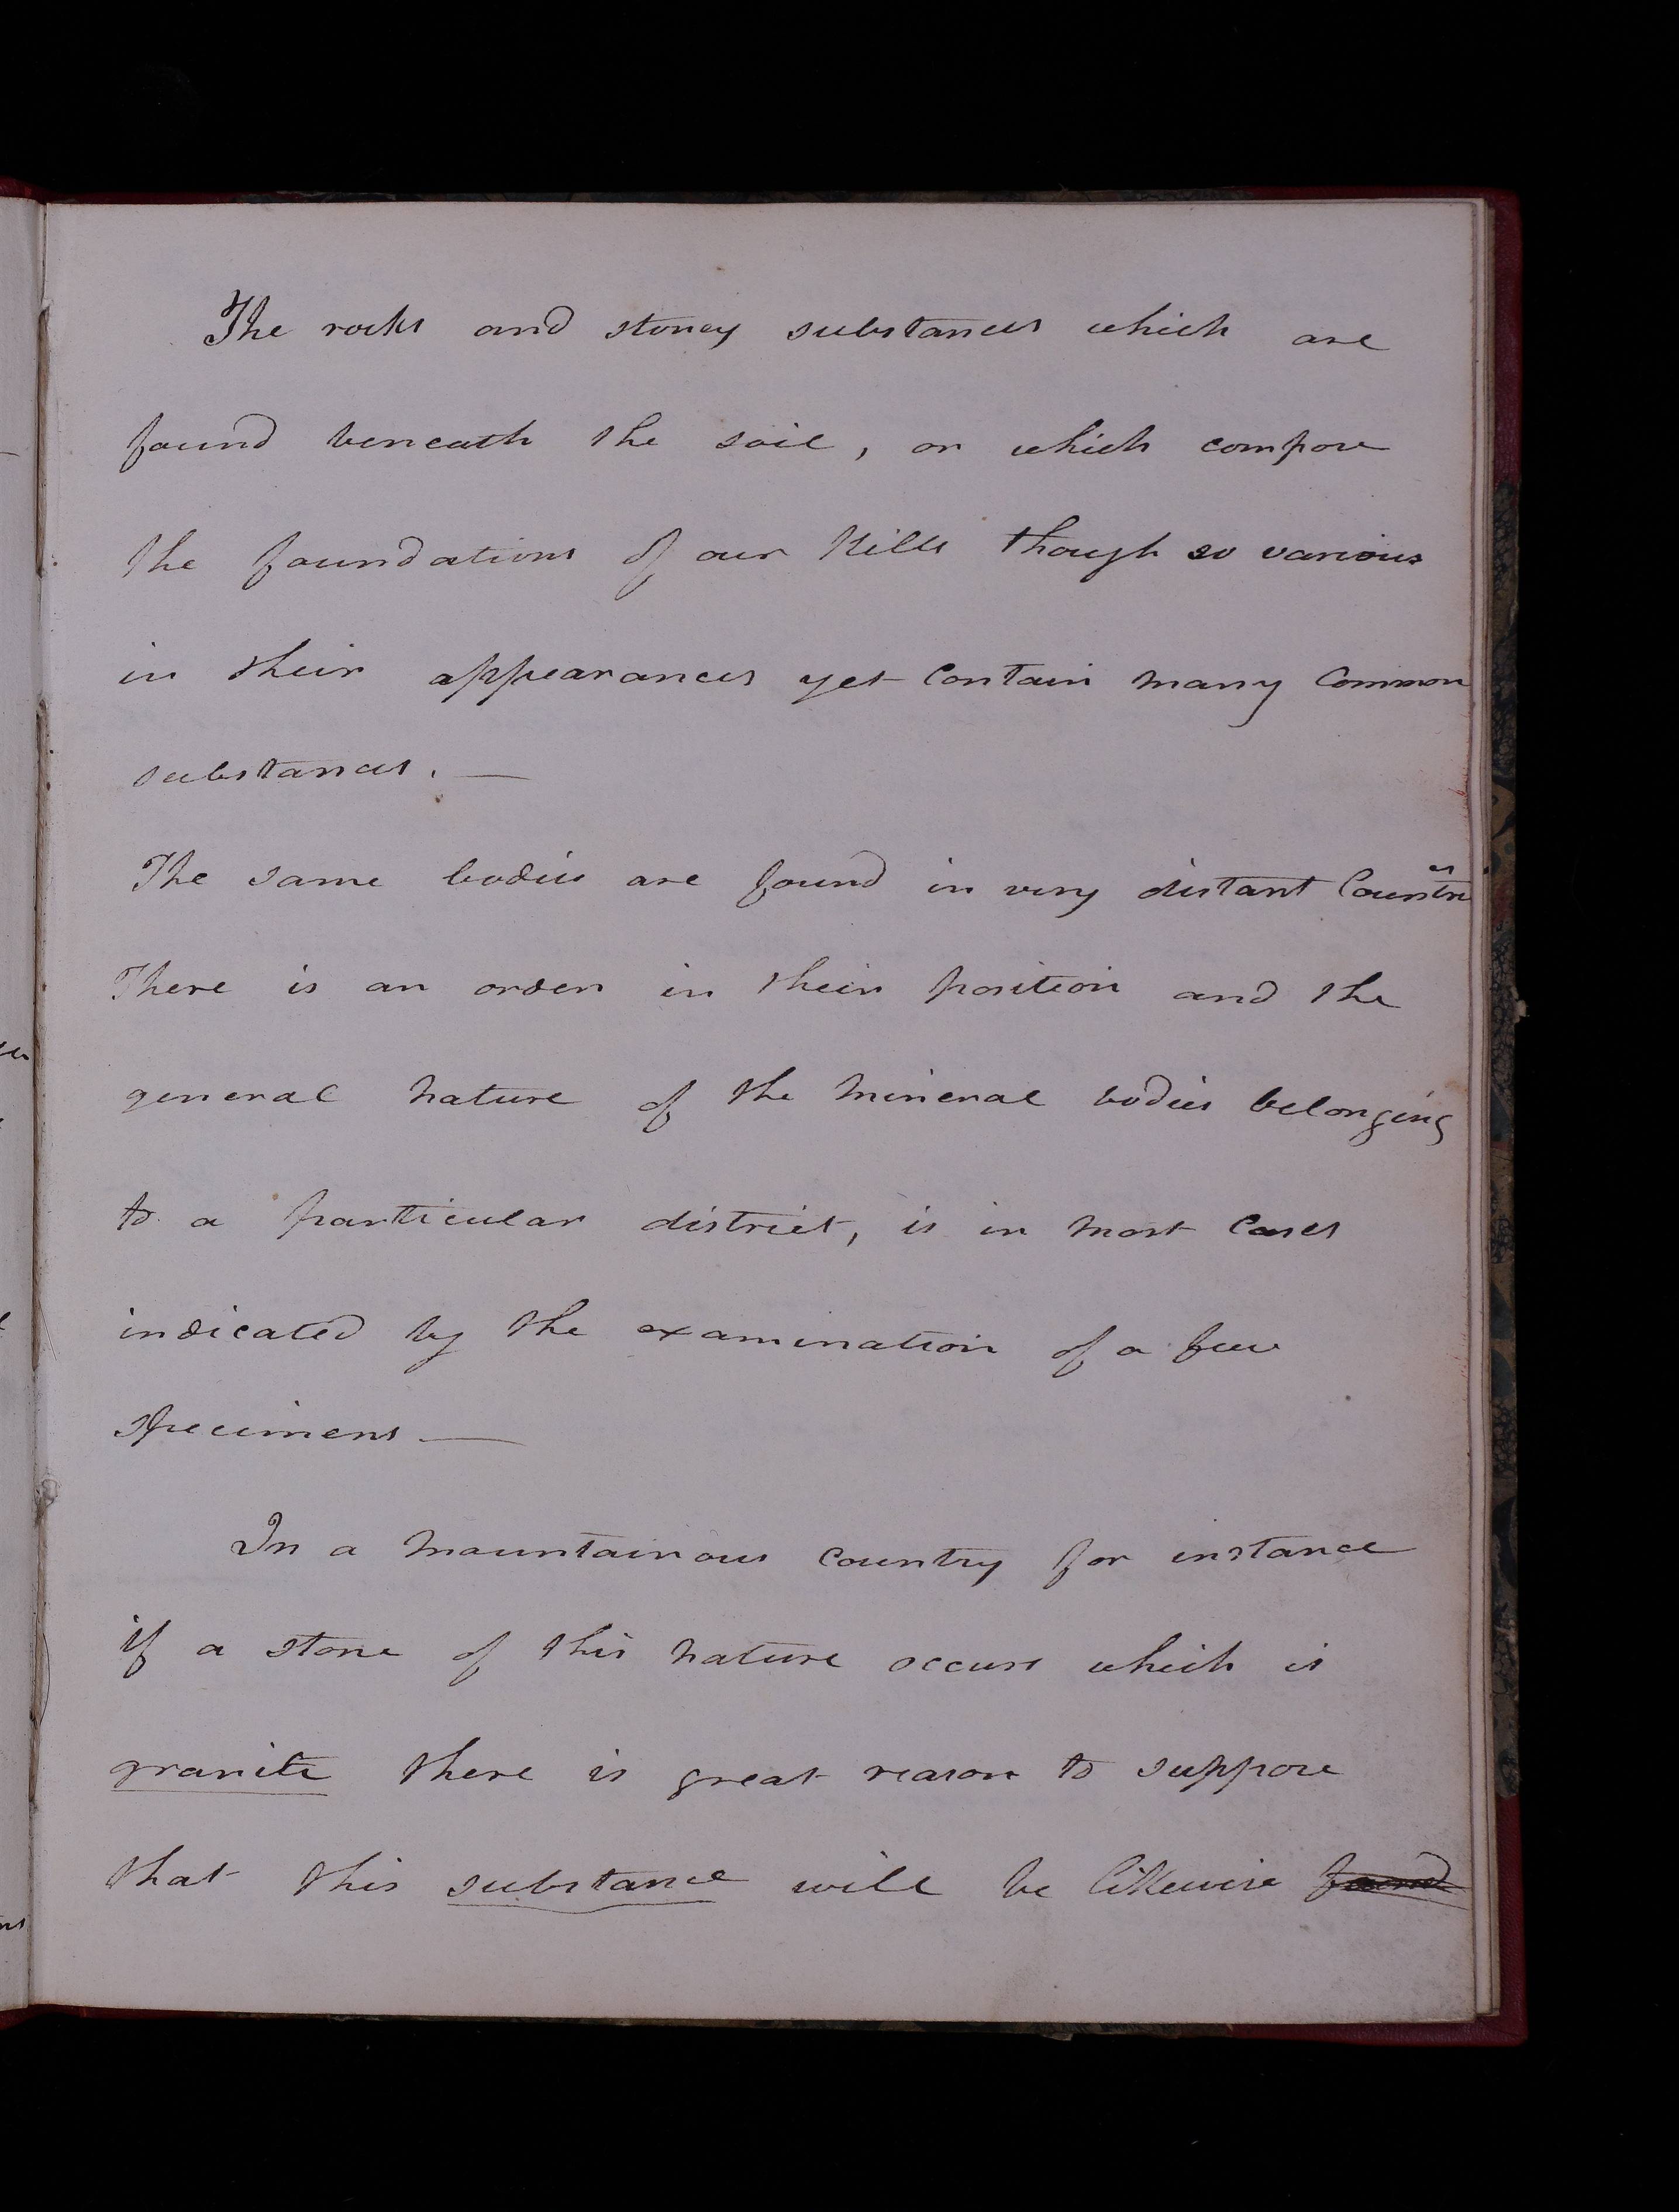 The rocks and stoney substances which are
found beneath the soil, or which compose
the foundations of our Hills though so various
in their appearances yet contain many Common
substances. —
The same bodies are found in very distant Countries
There is an order in their position and the
general nature of the mineral bodies belonging
to a particular district, is in most Cases
indicated by the examination of a few
specimens —
In a mountainous Country for instance
if a stone of this nature occurs which is
granite there is great reason to suppose
that this substance will be likewise found